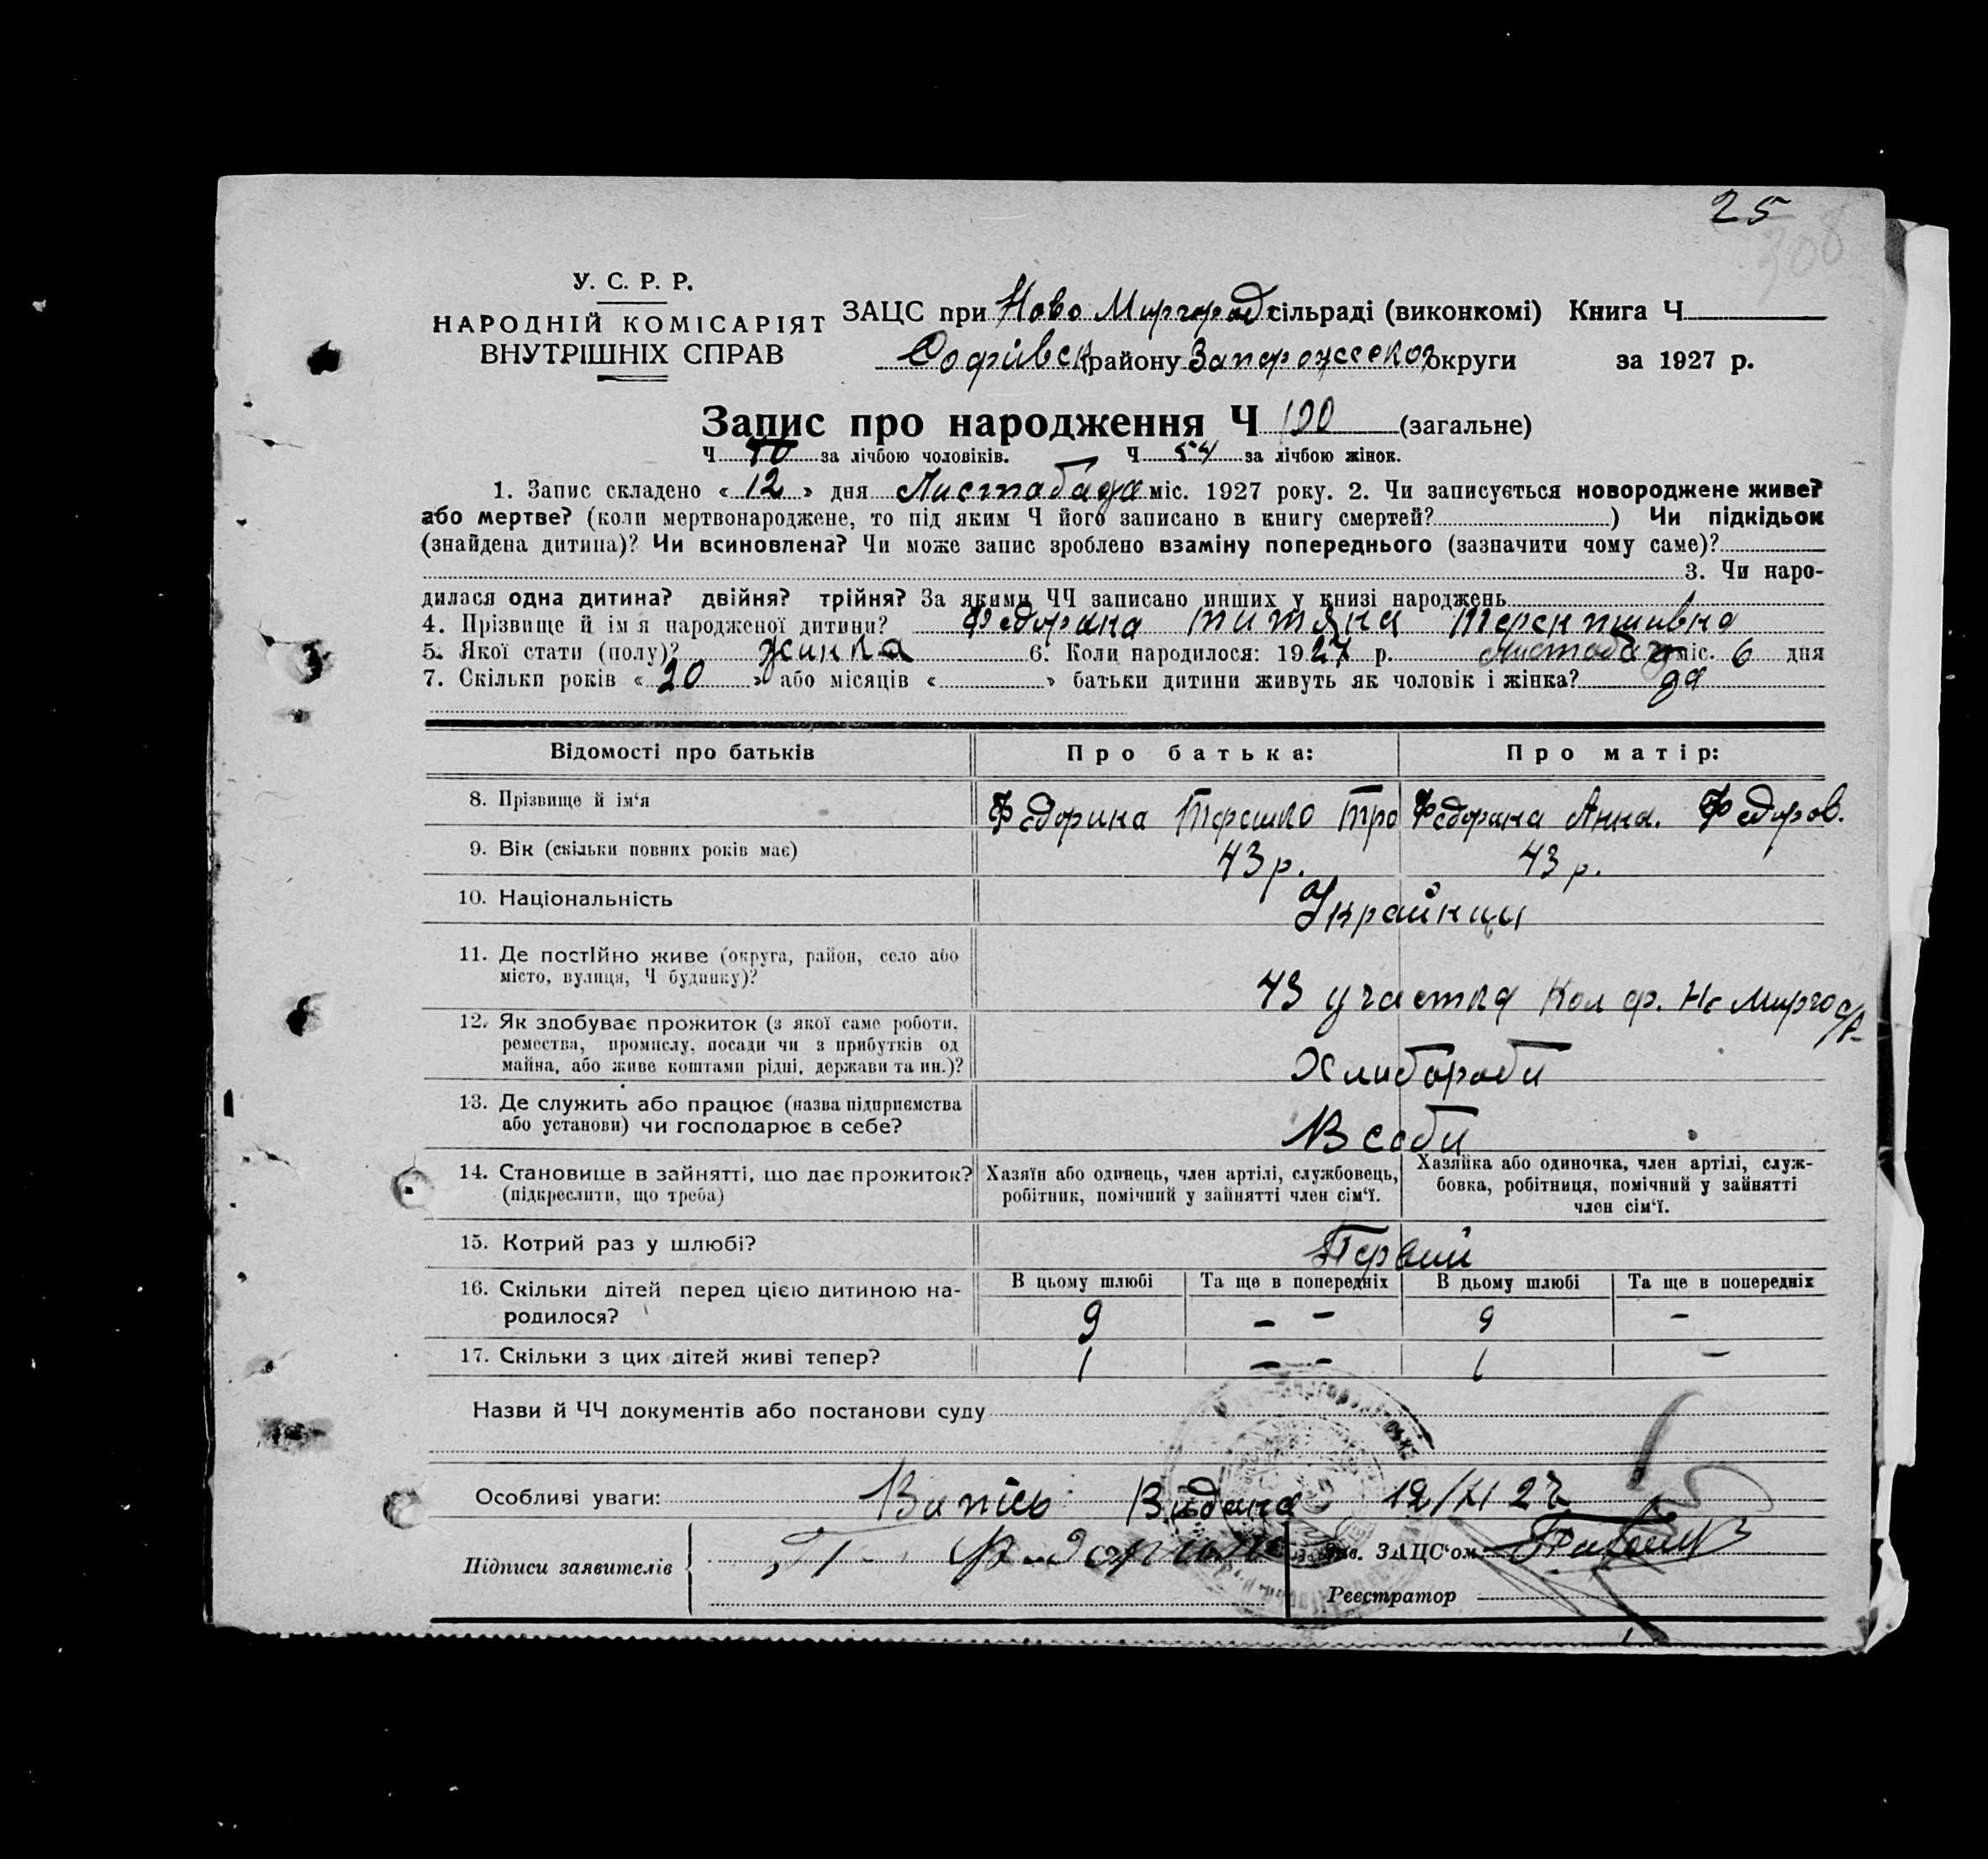 25
308
У. С. Р. Р.
НАРОДНІЙ КОМІСАРІЯТ
ВНУТРІШНІХ СПРАВ
ЗАЦС при Ново Миргород сільраді (виконкомі) Книга Ч
Софіївск району Запорожськоі округи за 1927 р.
Запис про народження Ч 100 (загальне)
Ч за лічбою чоловіків. Ч 54 за лічбою жінок.
1. Запис складено « 12 » дня Листабада міс. 1927 року. 2. Чи записується новороджене живе?
або мертве? (коли мертвонароджене, то під яким Ч його записано в книгу смертей? ) Чи підкідьок
(знайдена дитина)? Чи всиновлена? Чи може запис зроблено взаміну попереднього (зазначити чому саме)?
3. Чи наро-
дилася одна дитина? двійня? трійня? За якими ЧЧ записано инших у книзі народжень
4. Прізвище й ім'я народженої дитини? Федорина титяна
5. Якої стати (полу)? жинка 6. Коли народилося: 1927 р. Листабад міс. 6 дня
7. Скільки років « 20 » або місяців « » батьки дитини живуть як чоловік і жінка? да
Відомості про батьків Про батька: Про матір:
8. Прізвище й ім'я Федорина Терешко Тро Федорина Анна. Федоров.
9. Вік (скільки повних років має) 43 р. 43 р.
10. Національність Українци
11. Де постійно живе (округа, район, село або
місто, вулиця, Ч будинку)? 43 участка Кол ф. Н Мирго с/р
12. Як здобуває прожиток (з якої саме роботи,
ремества, промислу, посади чи з прибутків од
майна, або живе коштами рідні, держави та ин.)? Хлибороби
13. Де служить або працює (назва підприємства
або установи) чи господарює в себе? В себи
14. Становище в зайнятті, що дає прожиток?
(підкреслити, що треба)
Хазяїн або одинець, член артілі, службовець,
робітник, помічний у зайнятті член сім'ї.
Хазяйка або одиночка, член артілі, служ-
бовка, робітниця, помічний у зайнятті
член сім'ї.
15. Котрий раз у шлюбі? Первий
В цьому шлюбі Та ще в попередніх В цьому шлюбі Та ще в попередніх
16. Скільки дітей перед цією дитиною на-
родилося? 9 - - 9 -
17. Скільки з цих дітей живі тепер? 1 - - 1 -
Назви й ЧЧ документів або постанови суду
Особливі уваги: Випісь Видана 12/XI 27
Підписи заявителів Федорина Зав. ЗАЦС'ом
Реєстратор